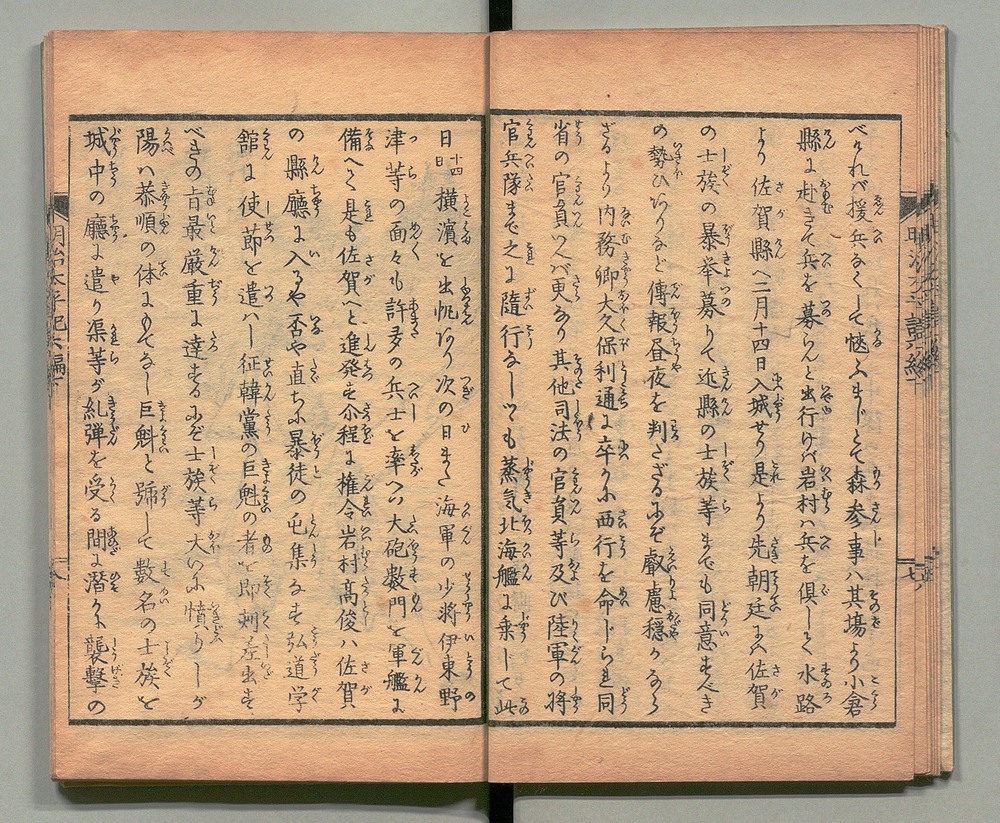 べけれバ援兵なくして愜ふまじとて森参事ハ其場より小倉
縣に赴きて兵を募らんと出行けバ岩村ハ兵を倶して水路
より佐賀縣へ二月十四日入城せり是より先朝廷にハ佐賀
の士族の暴挙募りて近縣の士族等までも同意すべき
の勢ひありなど傳報昼夜を判たざるにぞ叡慮穏かなら
ざるより内務卿大久保利通に卒かに西行を命じられ同
省の官員いへバ更なり其他司法の官員等及び陸軍の将
官兵隊まで之に随行なしつゝも蒸気北海艦に乗して此
日十四日横濱を出帆あり次の日また海軍の少将伊東野
津等の面々も許多の兵士を率へ大砲数門を軍艦に
備へて是も佐賀へと進発す尓程に権令岩村高俊ハ佐賀
の縣廳に入るや否や直ちに暴徒の屯集なす弘道学
舘に使節を遣ハし征韓黨の巨魁の者を即刻差出す
べきの旨最厳重に達するにぞ士族等大いに憤りしが
陽ハ恭順の体にもてなし巨魁と号して数名の士族を
城中の廳に遣り渠等が糺弾を受る間に潜かに襲撃の
明治太平記六編下